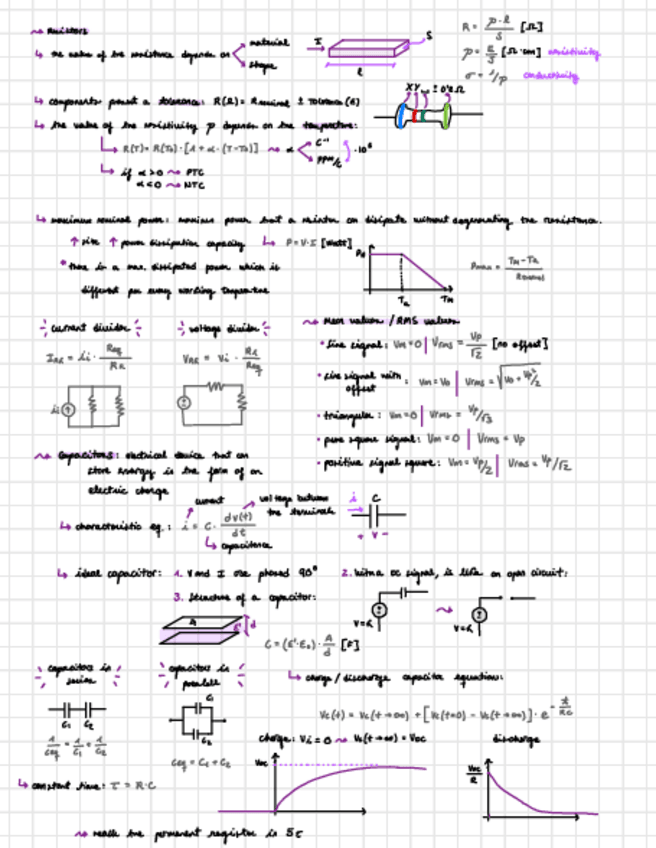 ~> Resistors
R = ρ·l / S [Ω]
↳ the value of the resistance depends on < material
shape
I
S
l
ρ = R/S [Ω·cm] resistivity
σ = 1/ρ conductivity
↳ components present a tolerance: R(Ω) = R nominal ± Tolerance(Ω)
↳ the value of the resistivity ρ depends on the temperature:
R(T) = R(T0) · [1 + α · (T-T0)] ~> α < C⁻¹
ppm/c
·10⁶
↳ if α>0 ~> PTC
α<0 ~> NTC
↳ maximum nominal power: maximum power that a resistor can disipate without degenerating the resistance.
↑ size ↑ power dissipation capacity ↳ P = V·I [Watt]
* there is a max. dissipated power which is
different per every working temperature
Ta
TM
current divider
voltage divider
~> Mean values / RMS values
• sine signal: Vm=0 | Vrms = Vp/√2 [no offset]
• sine signal with
offset : Vm = Vo | Vrms = √(Vo + Vp²/2)
• triangular: Vm=0 | Vrms = Vp/√3
• pure square signal: Vm = 0 | Vrms = Vp
• positive signal square: Vm = Vp/2 | Vrms = Vp/√2
~> Capacitors: electrical device that can
store energy in the form of an
electric charge
current
voltage between
the terminals
↳ characteristic eq.: i = C · dv(t)/dt
↳ capacitance
i
C
+ V -
↳ ideal capacitor: 1. V and I are phased 90°
2. With a DC signal, is like an open circuit:
3. Structure of a capacitor:
A
d
[F]
capacitors in
series
capacitors in
parallel
↳ charge / discharge capacitor equation:
Vc(t) = Vc(t→∞) + [Vc(t=0) - Vc(t→∞)] · e^(-t/RC)
C1 C2
1/Ceq = 1/C1 + 1/C2
C1
C2
Ceq = C1 + C2
charge: Vi = 0 ~> Vc(t→∞) = VDC
discharge
VDC
VDC/R
↳ constant time: τ = R·C
~> reach the permanent register is 5τ